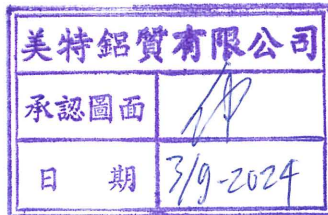 美特鋁質有限公司
承認圖面
日 期 3/9-2024